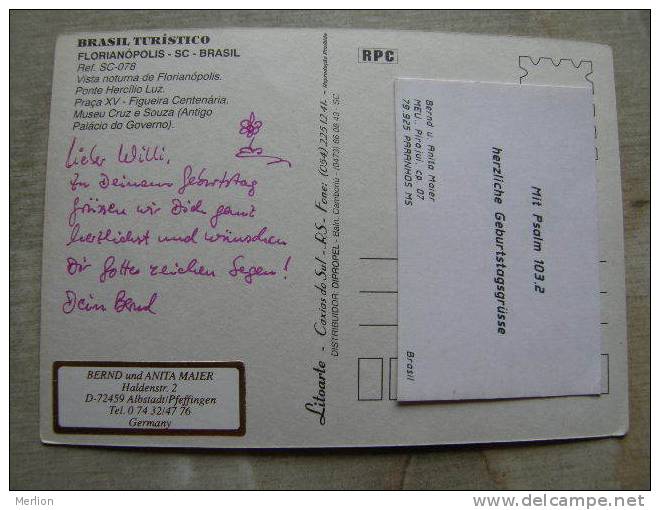 BRASIL TURÍSTICO
FLORIANÓPOLIS - SC - BRASIL
Ref. SC-078
Vista noturna de Florianópolis.
Ponte Hercílio Luz.
Praça XV - Figueira Centenária.
Museu Cruz e Souza (Antigo
Palácio do Governo).
Lieber Willi,
Zu Deinem Geburtstag
grüssen wir Dich ganz
herzlichst und wünschen
Dir Gottes reichen Segen!
Dein Bernd
BERND und ANITA MAIER
Haldenstr. 2
D-72459 Albstadt/Pfeffingen
Tel. 0 74 32/47 76
Germany
Litoarte - Caxias do Sul - RS - Fone: (054) 225.12.41 - Reprodução Proibida
DISTRIBUIDOR: DIPROPEL - Baln. Camboriú - (0473) 66.09.43 - SC
RPC
Bernd u. Anita Maier
MEU. Pirajui, cp 07
79.925 PARANHOS MS
Brasil
Mit Psalm 103.2
herzliche Geburtstagsgrüsse
Merlion
www.delcampe.net